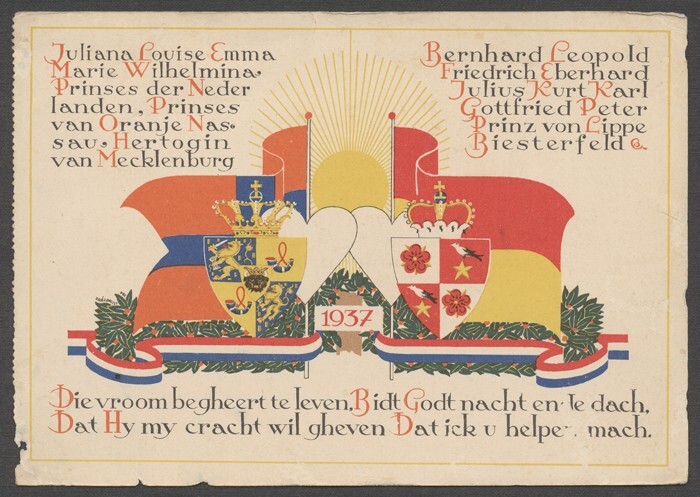 Juliana Louise Emma
Marie Wilhelmina,
Prinses der Neder
landen, Prinses
van Oranje Nas=
sau, Hertogin
van Mecklenburg
Bernhard Leopold
Friedrich Eberhard
Julius Kurt Karl
Gottfried Peter
Prinz von Lippe
Biesterfeld
1937
Die vroom begheert te leven, Bidt Godt nacht en de dach,
Dat Hy my cracht wil gheven Dat ick u helpe mach.